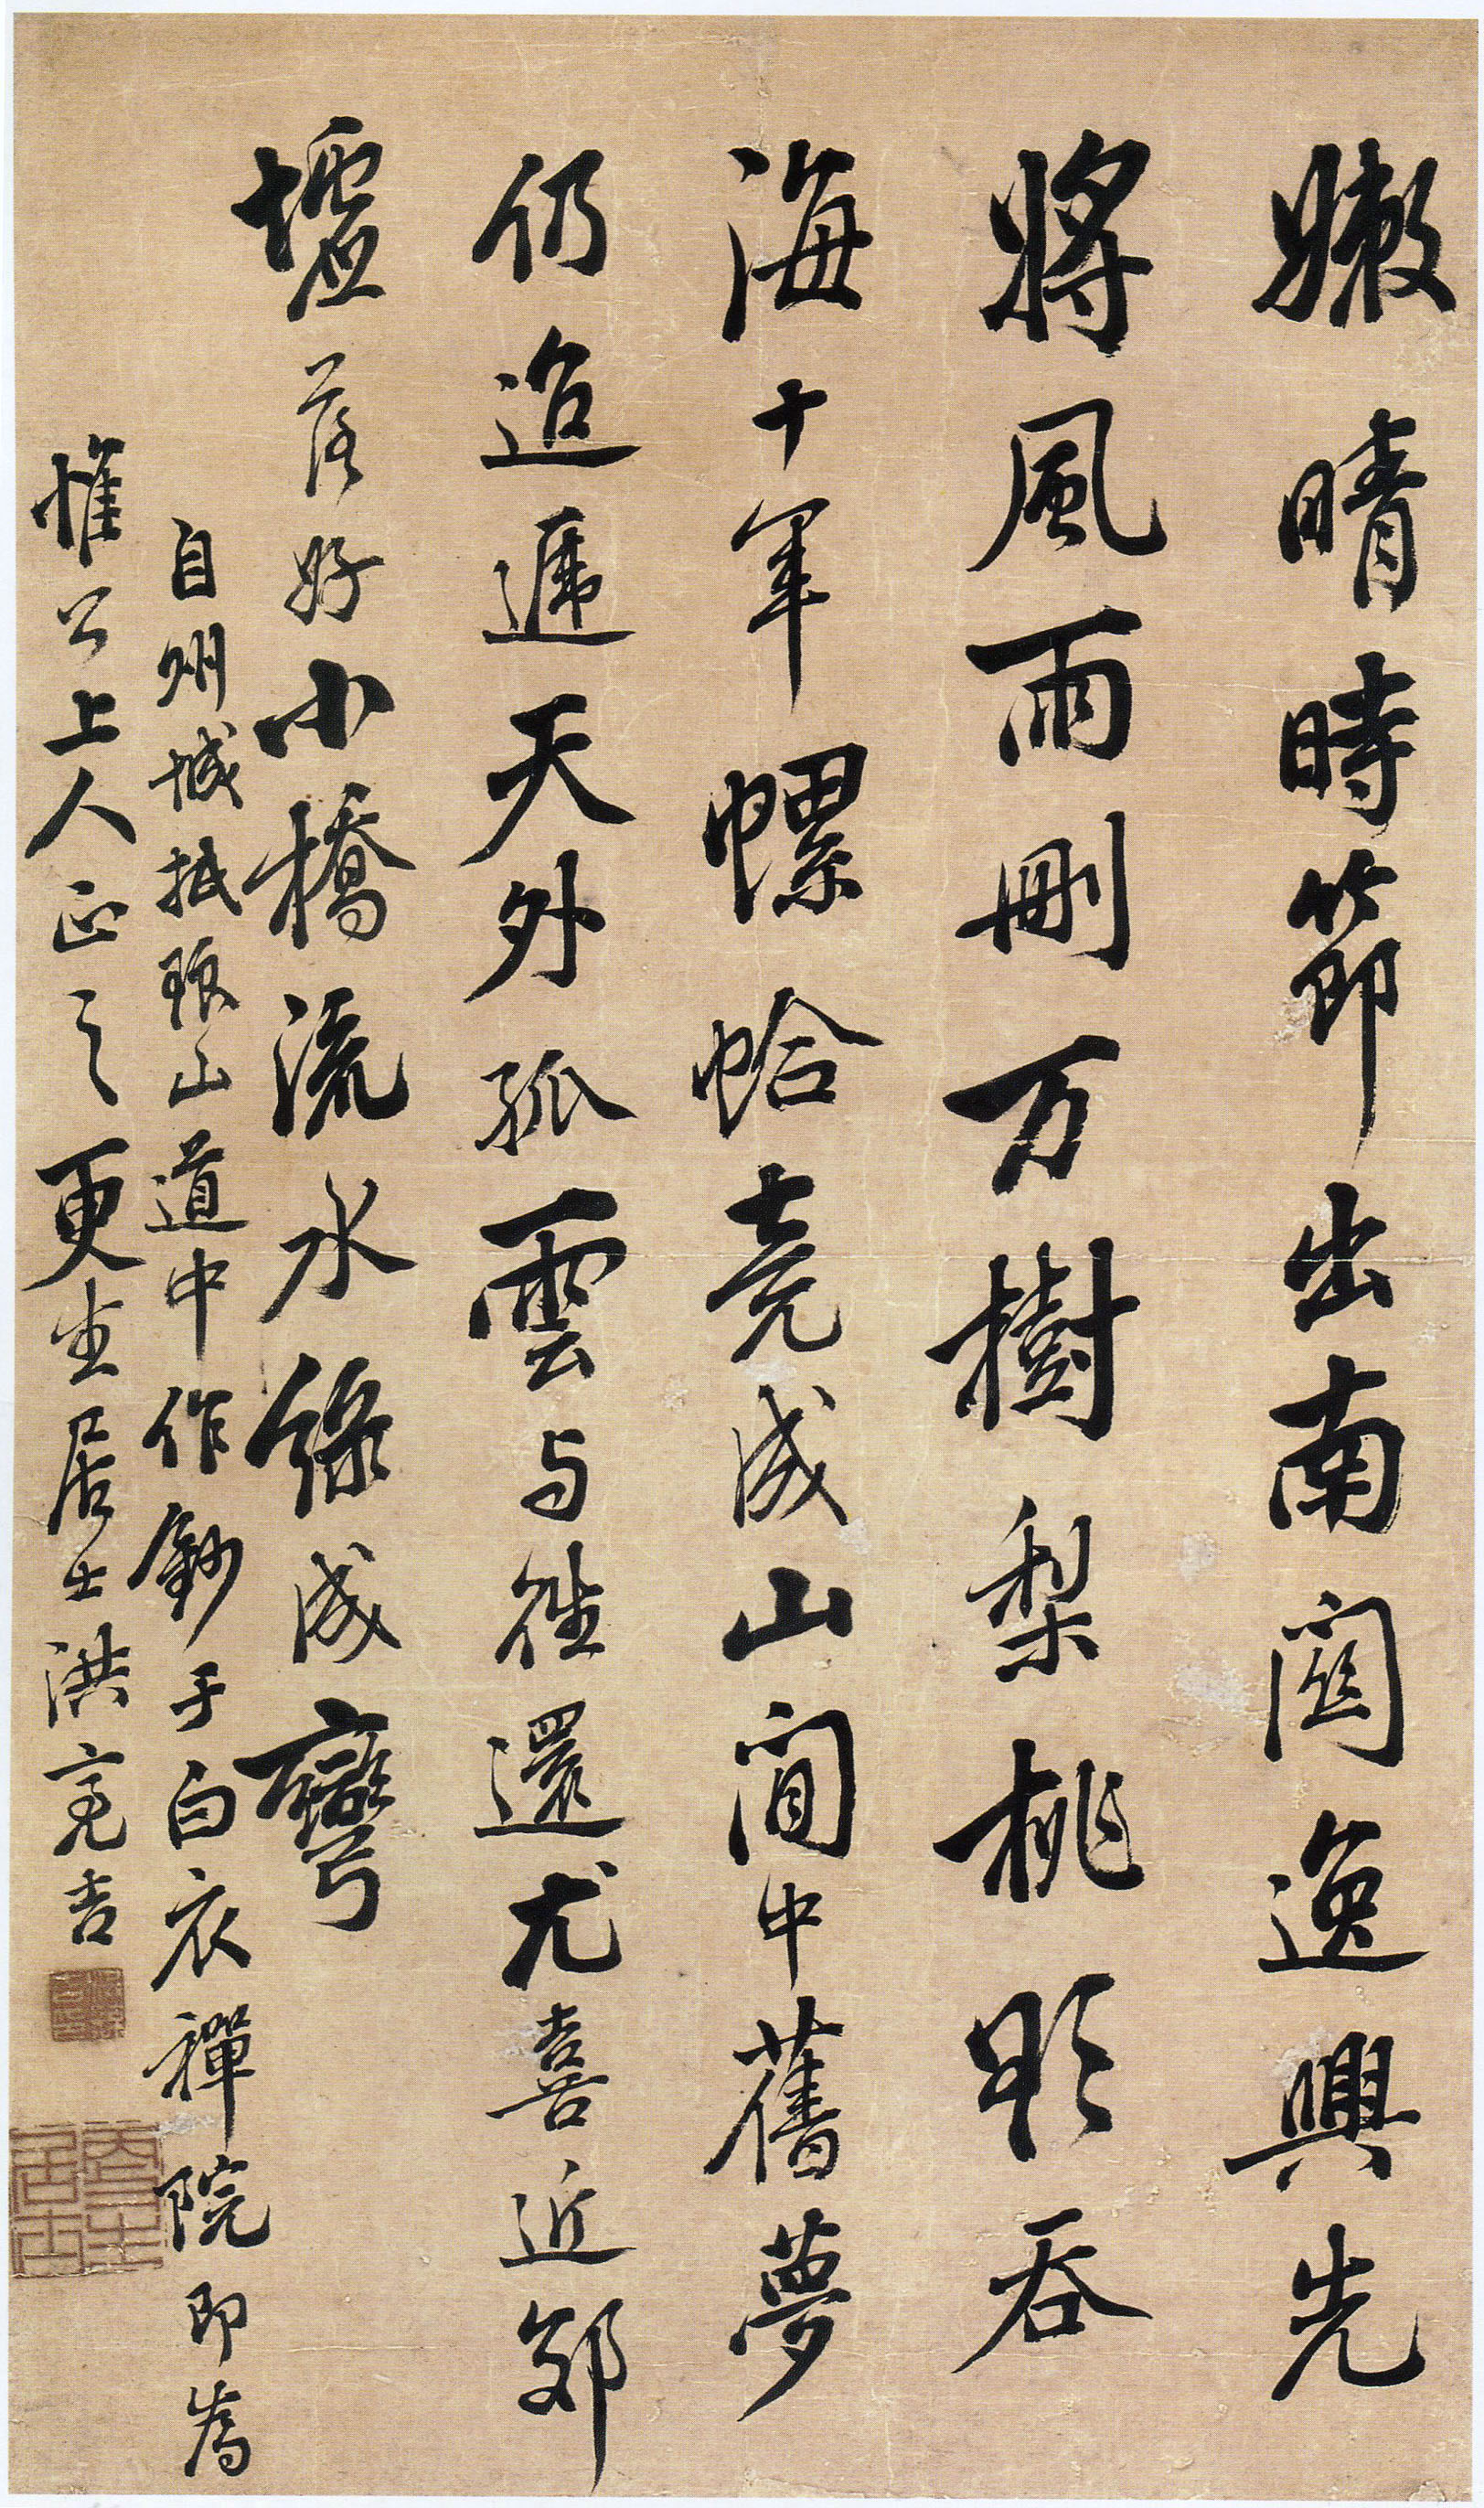 嫩晴時節出南關逸興先
將風雨刪万樹梨桃吞
海十年螺蛤竟成山閒中舊夢
仍迢遞天外孤雲与往還尤喜近郊
墟落好小橋流水綠成彎
自州城抵琅山道中作鈔于白衣禪院即為
惟公上人正之更生居士洪亮吉
更生居士